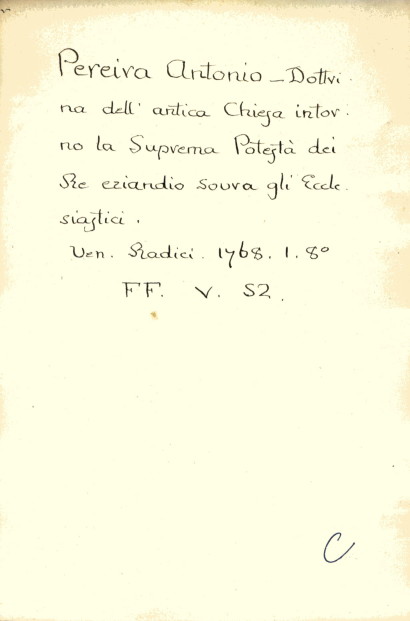 Pereira Antonio - Dottri-
na dell' antica Chiesa intor-
no la Suprema Potestà dei
Re eziandio sovra gli Eccle-
siastici.
Ven. Radici. 1768. 1. 8º
FF. V. 52.
C